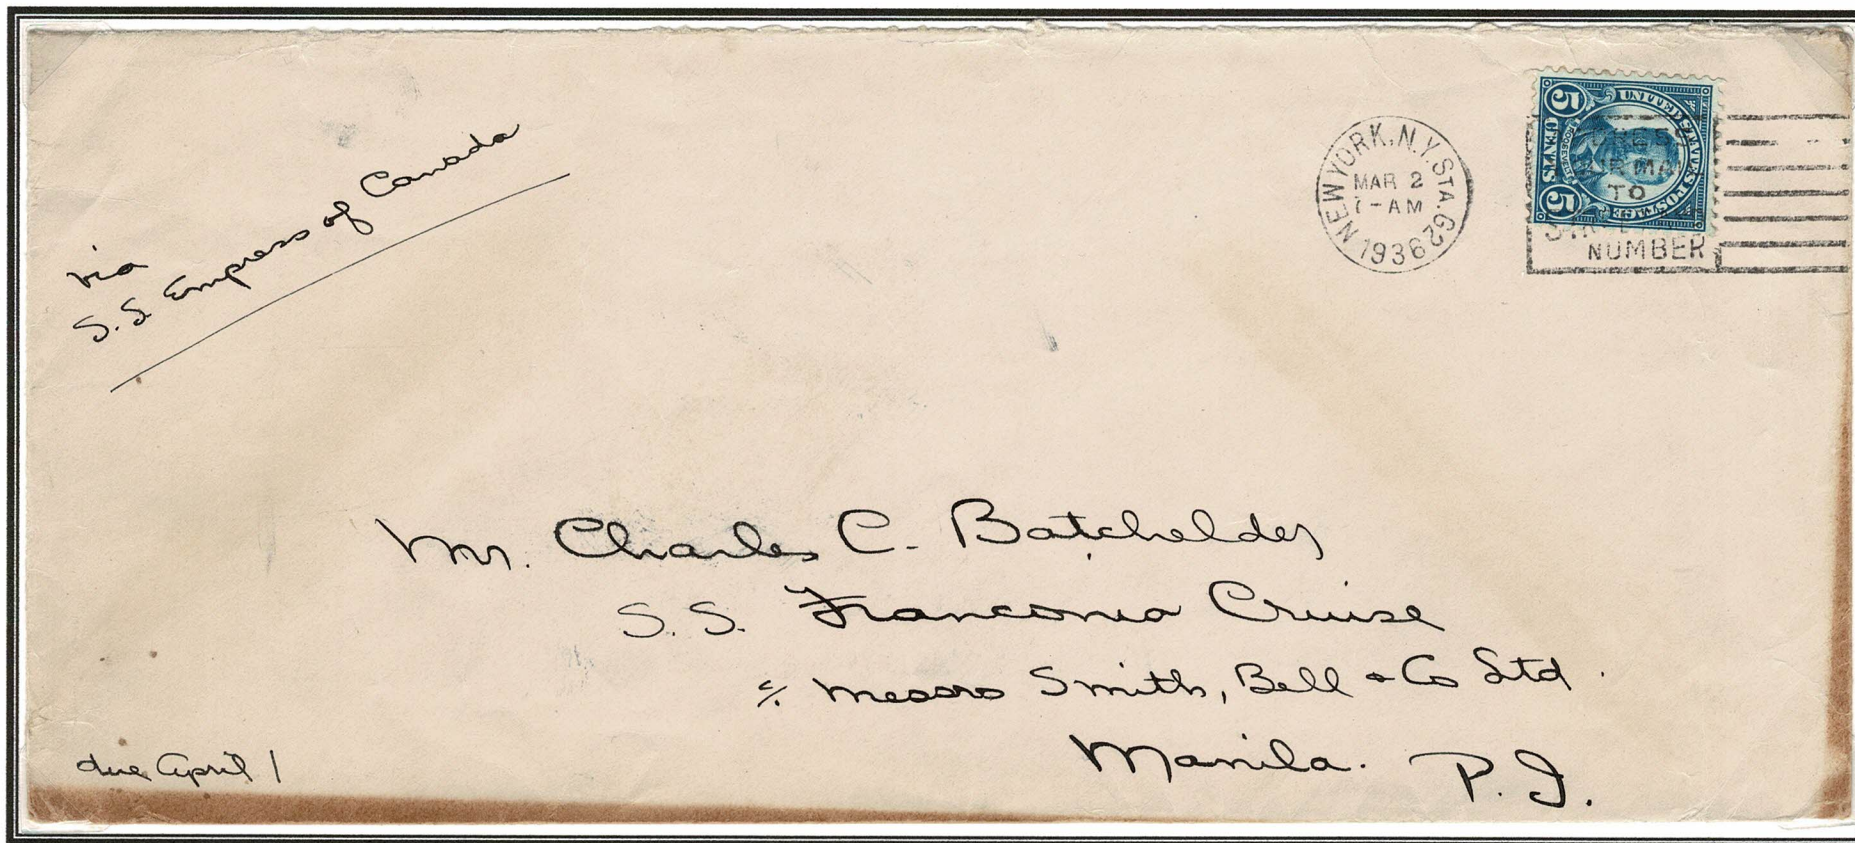 via
S.S. Empress of Canada
NEW YORK, N.Y. STA. 62
MAR 2
7-AM
1936
UNITED STATES POSTAGE
5 CENTS 5
ROOSEVELT
TO
NUMBER
Mr. Charles C. Batchelder
S.S. Franconia Cruise
c/. Messrs Smith, Bell & Co Ltd.
Manila. P.I.
due April 1